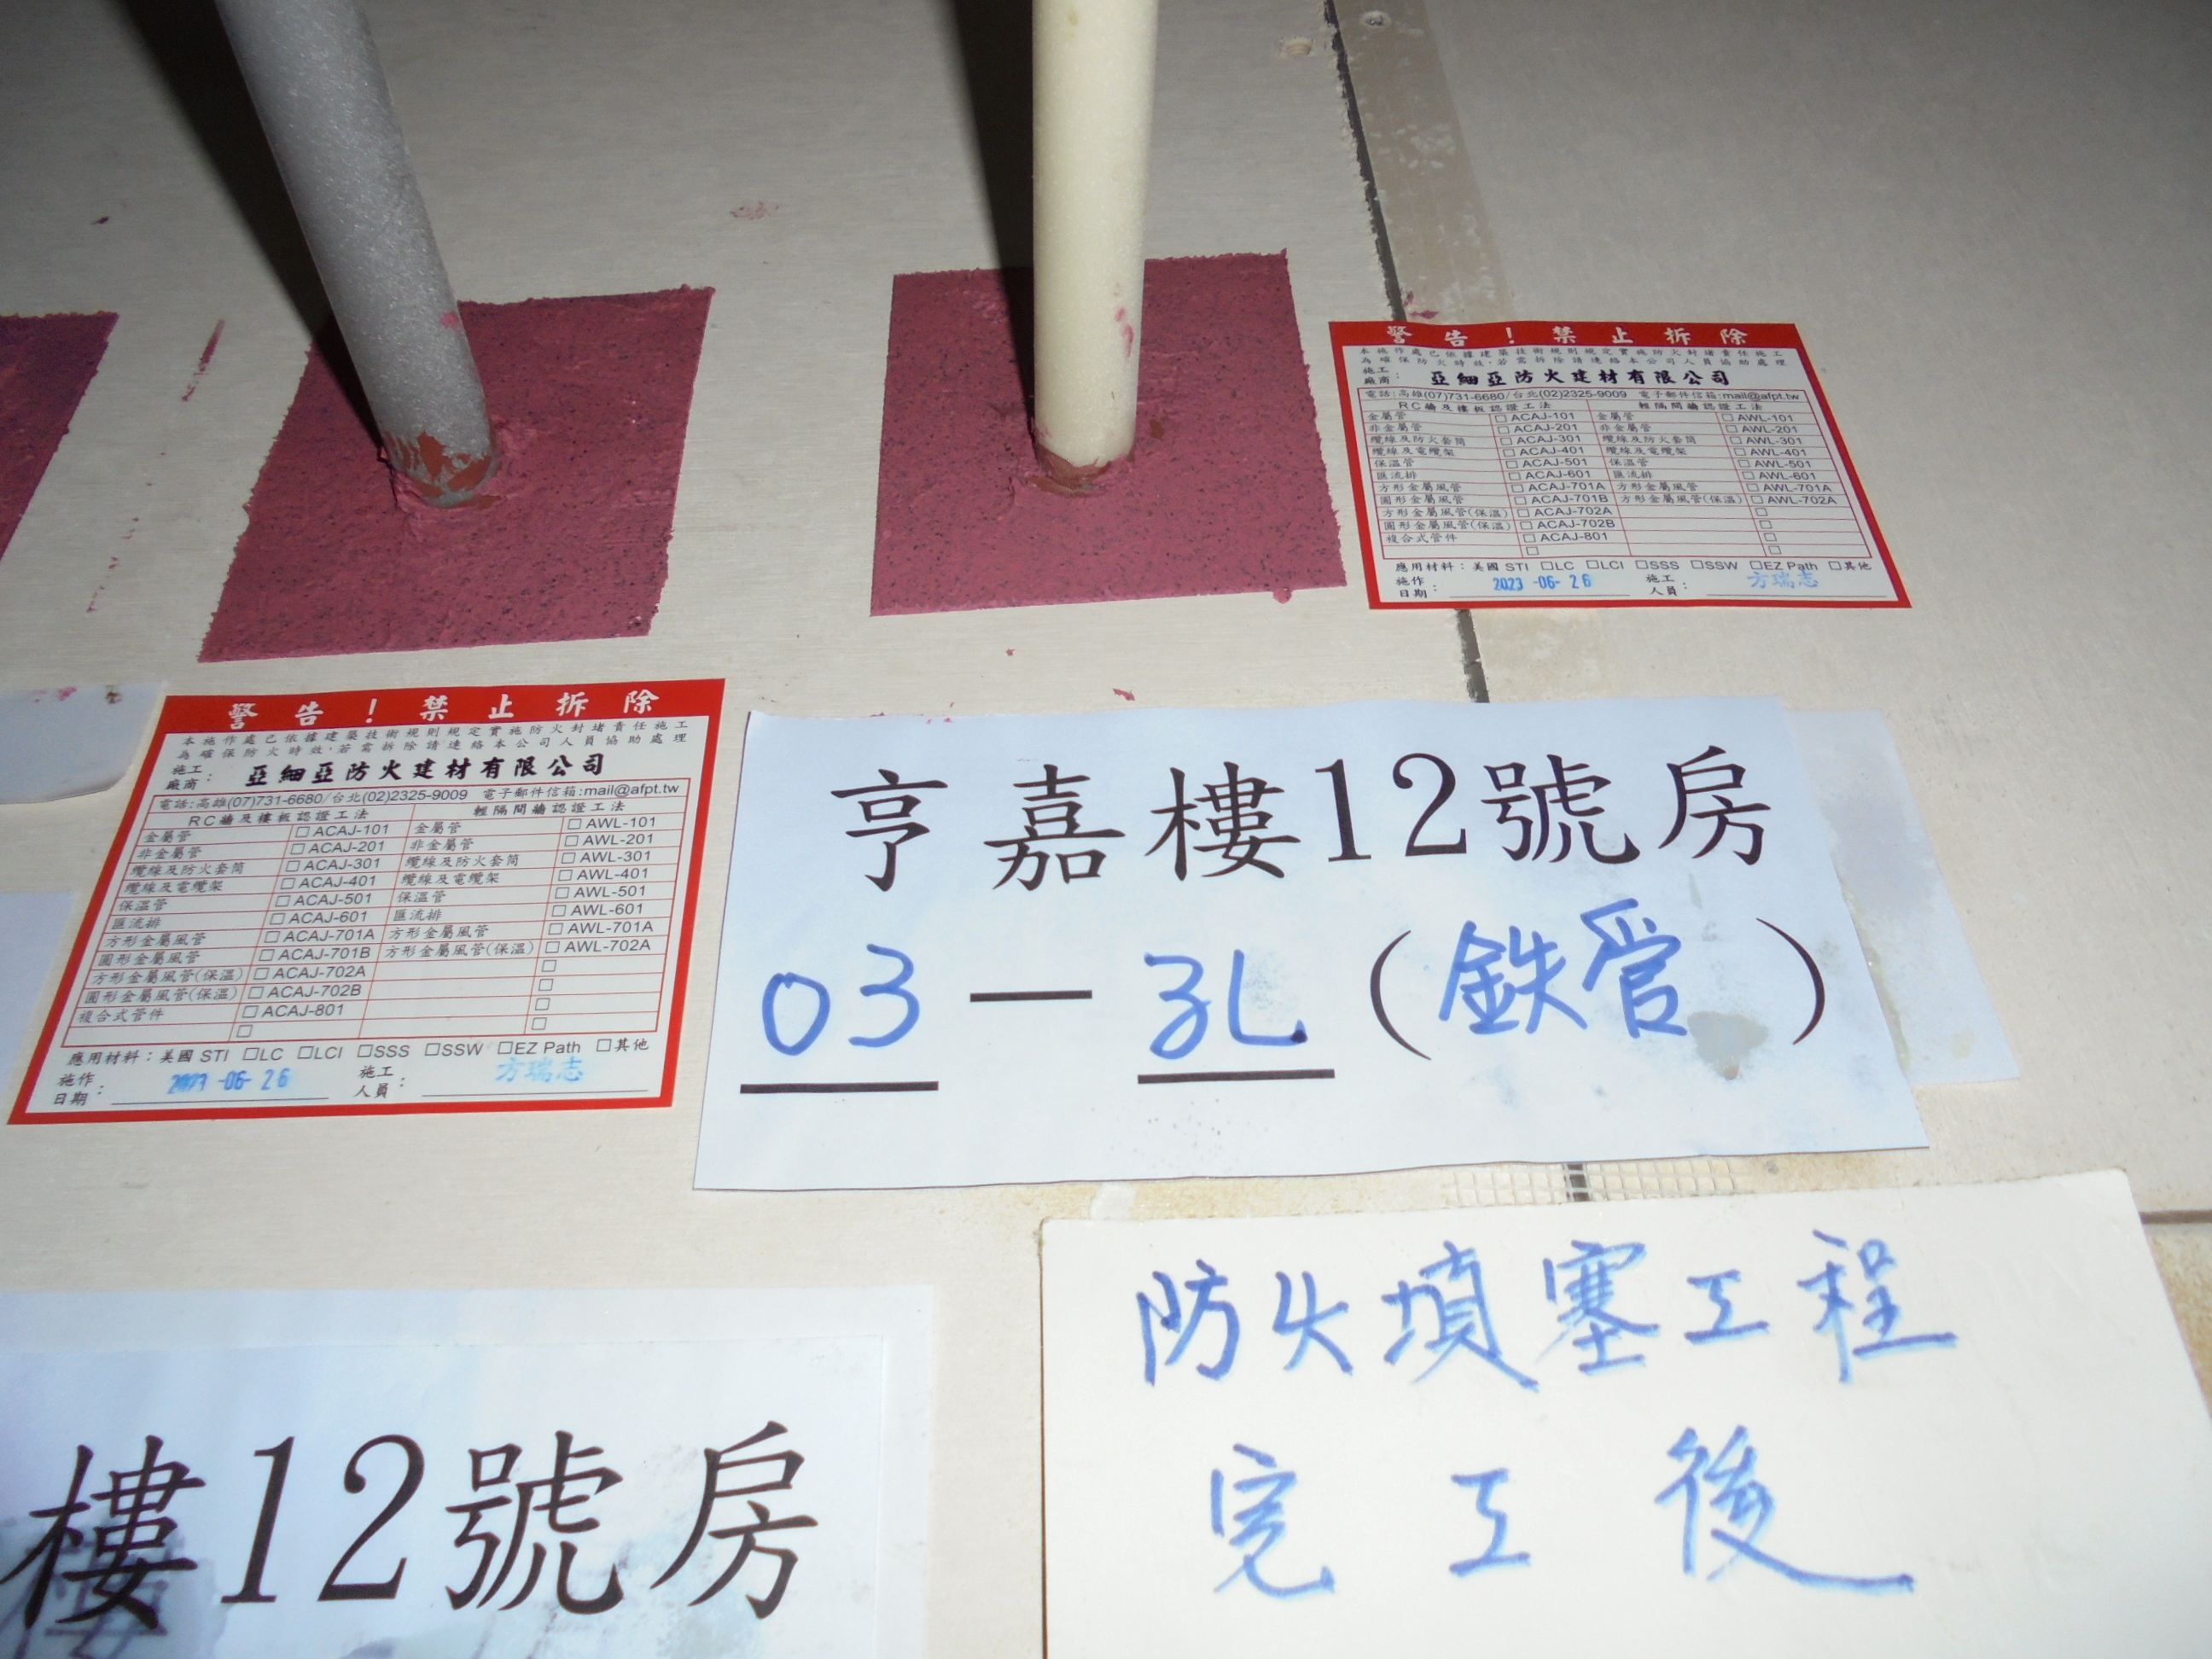 警告！禁止拆除
本施作處已依據建築技術規則規定實施防火封堵責任施工
為確保防火時效，若需拆除請連絡本公司人員協助處理
施工廠商： 亞細亞防火建材有限公司
電話:高雄(07)731-6680/台北(02)2325-9009 電子郵件信箱:mail@afpt.tw
RC牆及樓板認證工法 輕隔間牆認證工法
金屬管 □ACAJ-101 金屬管 □AWL-101
非金屬管 □ACAJ-201 非金屬管 □AWL-201
纜線及防火套筒 □ACAJ-301 纜線及防火套筒 □AWL-301
纜線及電纜架 □ACAJ-401 纜線及電纜架 □AWL-401
保溫管 □ACAJ-501 保溫管 □AWL-501
匯流排 □ACAJ-601 匯流排 □AWL-601
方形金屬風管 □ACAJ-701A 方形金屬風管 □AWL-701A
圓形金屬風管 □ACAJ-701B 方形金屬風管(保溫) □AWL-702A
方形金屬風管(保溫) □ACAJ-702A □
圓形金屬風管(保溫) □ACAJ-702B □
複合式管件 □ACAJ-801 □
□ □
應用材料：美國 STI □LC □LCI □SSS □SSW □EZ Path □其他
施作日期： 2023-06-26 施工人員： 方瑞志
警告！禁止拆除
本施作處已依據建築技術規則規定實施防火封堵責任施工
為確保防火時效，若需拆除請連絡本公司人員協助處理
施工廠商： 亞細亞防火建材有限公司
電話:高雄(07)731-6680/台北(02)2325-9009 電子郵件信箱:mail@afpt.tw
RC牆及樓板認證工法 輕隔間牆認證工法
金屬管 □ACAJ-101 金屬管 □AWL-101
非金屬管 □ACAJ-201 非金屬管 □AWL-201
纜線及防火套筒 □ACAJ-301 纜線及防火套筒 □AWL-301
纜線及電纜架 □ACAJ-401 纜線及電纜架 □AWL-401
保溫管 □ACAJ-501 保溫管 □AWL-501
匯流排 □ACAJ-601 匯流排 □AWL-601
方形金屬風管 □ACAJ-701A 方形金屬風管 □AWL-701A
圓形金屬風管 □ACAJ-701B 方形金屬風管(保溫) □AWL-702A
方形金屬風管(保溫) □ACAJ-702A □
圓形金屬風管(保溫) □ACAJ-702B □
複合式管件 □ACAJ-801 □
□ □
應用材料：美國 STI □LC □LCI □SSS □SSW □EZ Path □其他
施作日期： 2023-06-26 施工人員： 方瑞志
亨嘉樓12號房
03—孔(鉄管)
防火填塞工程
完工後
樓12號房